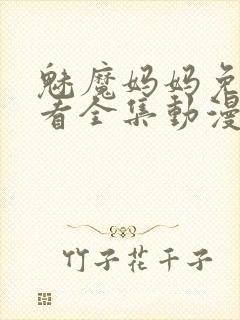 魅魔妈妈免
看全集動漫
竹子花千子